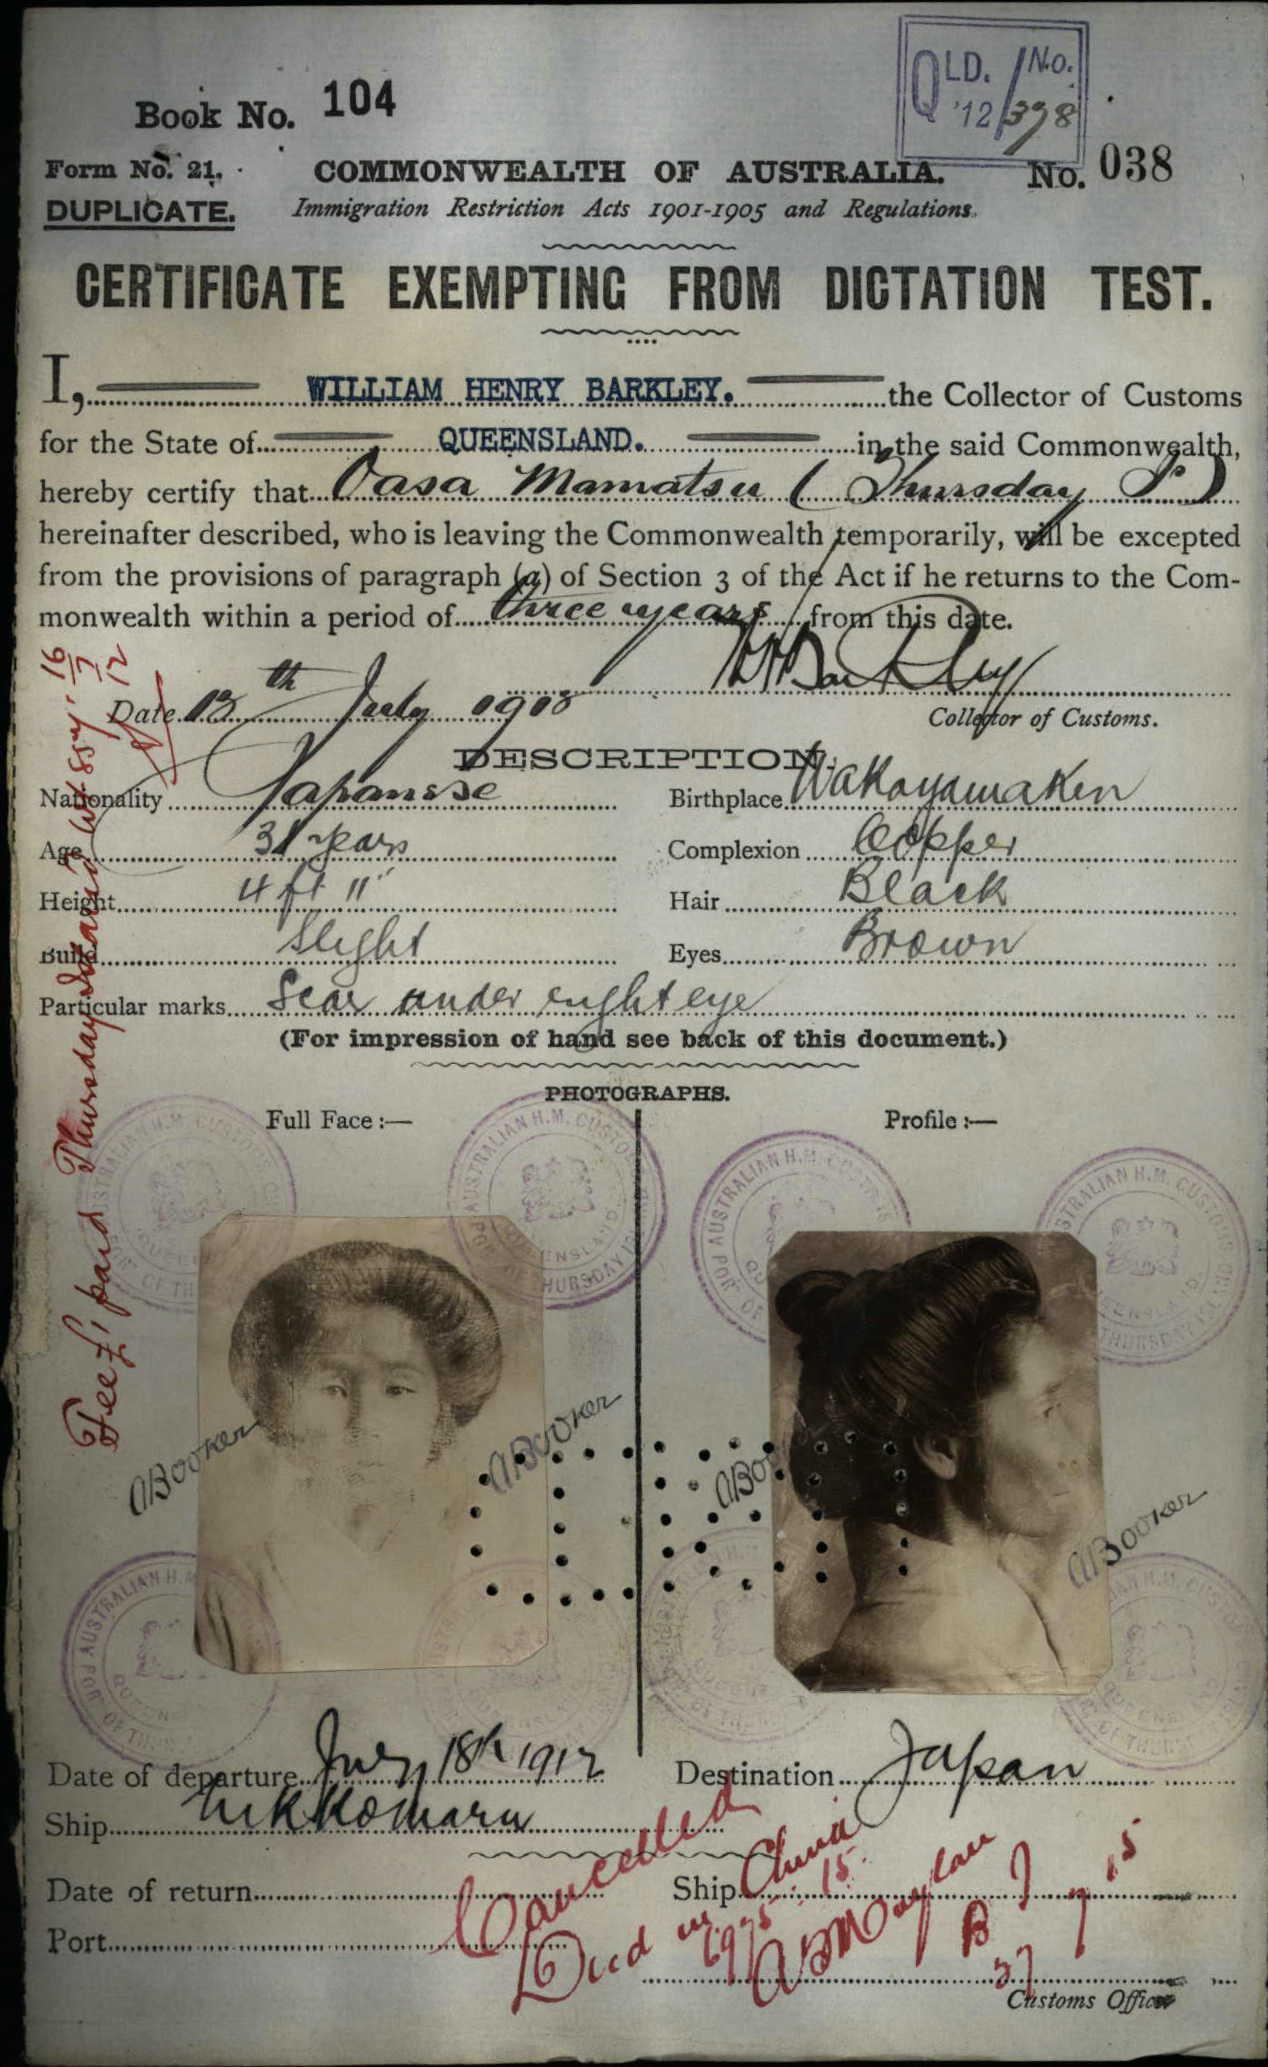 QLD. / No.
'12/398
Book No. 104
Form No. 21.
COMMONWEALTH OF AUSTRALIA.
No. 038
DUPLICATE.
Immigration Restriction Acts 1901-1905 and Regulations.
CERTIFICATE EXEMPTING FROM DICTATION TEST.
I, WILLIAM HENRY BARKLEY. the Collector of Customs
for the State of QUEENSLAND. in the said Commonwealth,
hereby certify that Oasa Mamatsu (Thursday Is)
hereinafter described, who is leaving the Commonwealth temporarily, will be excepted
from the provisions of paragraph (a) of Section 3 of the Act if he returns to the Com-
monwealth within a period of three years from this date.
WHBarkley
Date 13th July 1912
Collector of Customs.
DESCRIPTION.
Nationality Japanese
Birthplace Wakayamaken
Age 31 years
Complexion Copper
Height 4 ft 11"
Hair Black
Build Slight
Eyes Brown
Particular marks Scar under right eye
(For impression of hand see back of this document.)
Fee £1 paid Thursday Island 16/7/12
PHOTOGRAPHS.
Full Face :—
Profile :—
AUSTRALIAN H.M. CUSTOMS
QUEENSLAND
PORT OF THURSDAY ISLAND
ABooker
ABooker
ABoo
ABooker
Date of departure July 18th 1912
Destination Japan
Ship Nikko Maru
Cancelled
Date of return
Ship
Port
Died in China
15
ABMoylan
27 7 15
Customs Officer